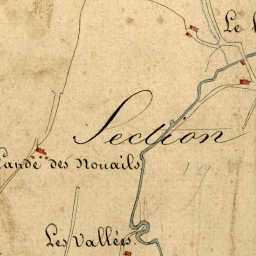 Le
Section
Lande des Nouails
Les Vallées